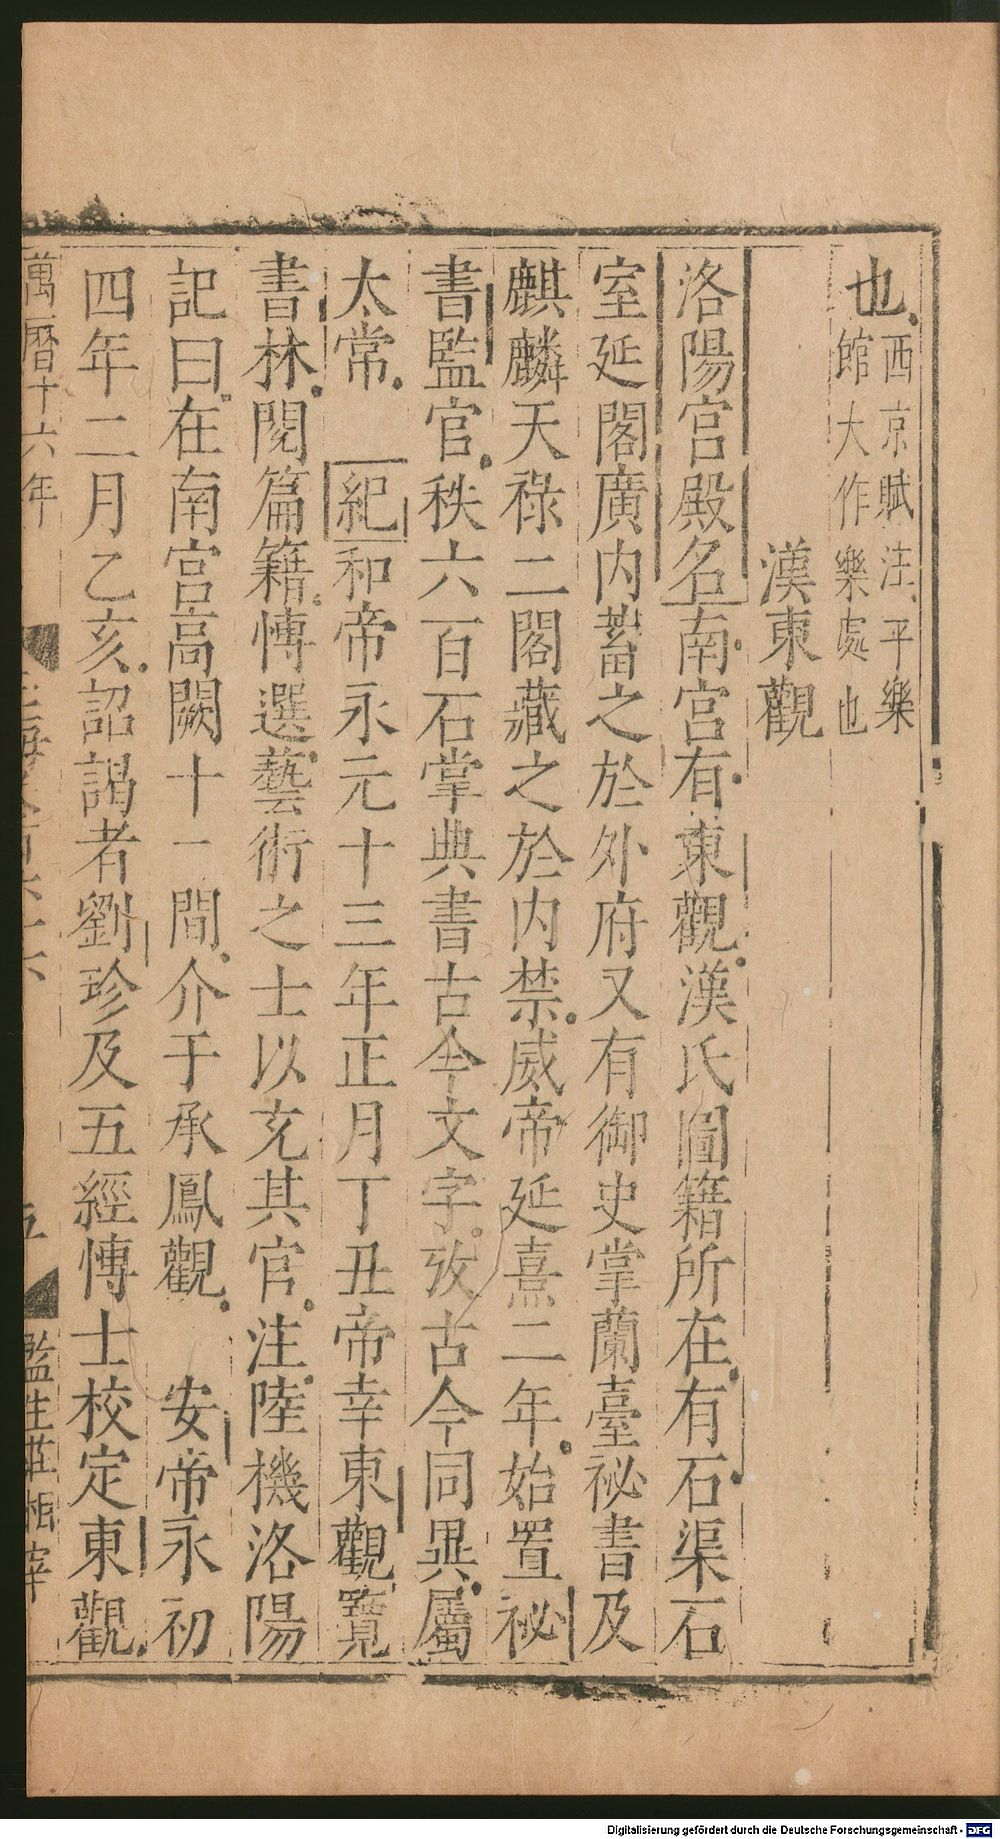 也西京賦注平樂
館大作樂處也
漢東觀
洛陽宮殿名南宮有東觀漢氏圖籍所在有石渠石
室延閣廣內蓄之於外府又有御史掌蘭臺祕書及
麒麟天祿二閣藏之於內禁威帝延熹二年始置祕
書監官秩六百石掌典書古今文字攷古今同異屬
太常 紀和帝永元十三年正月丁丑帝幸東觀覽
書林閱篇籍博選藝術之士以充其官注陸機洛陽
記曰在南宮高闕十二間介于承鳳觀 安帝永初
四年二月乙亥詔謁者劉珍及五經博士校定東觀
萬曆十六年
五
監生莊相宰
Digitalisierung gefördert durch die Deutsche Forschungsgemeinschaft - DFG